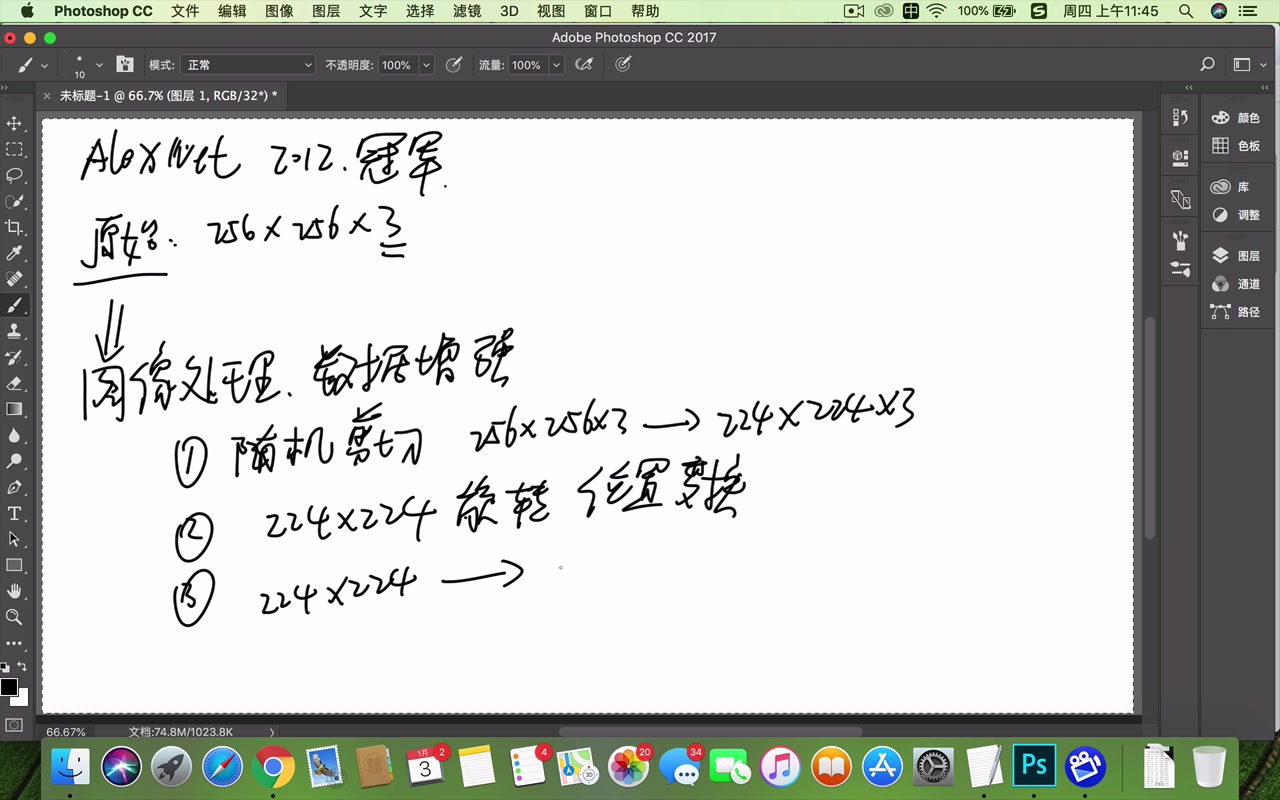 Photoshop CC 文件 编辑 图像 图层 文字 选择 滤镜 3D 视图 窗口 帮助 中 100% S 周四 上午11:45
Adobe Photoshop CC 2017
10 模式: 正常 不透明度: 100% 流量: 100%
× 未标题-1 @ 66.7% (图层 1, RGB/32*) *
颜色
色板
库
调整
图层
通道
路径
AlexNet 2012.冠军.
原始: 256×256×3
图像处理. 数据增强
① 随机剪切 256×256×3 → 224×224×3
② 224×224 旋转 位置变换
③ 224×224 →
66.67% 文档:74.8M/1023.8K
1月 3 2 4 3D 20 34 Ps